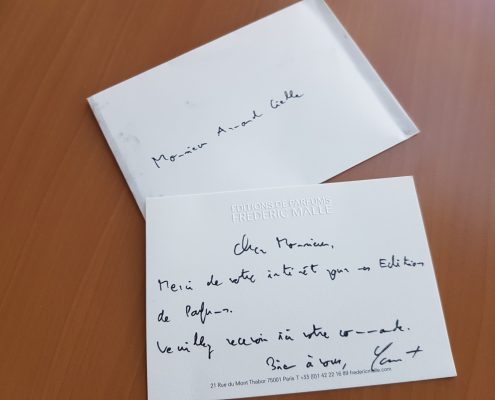 Monsieur Arnaud
EDITIONS DE PARFUMS
FREDERIC MALLE
Cher Monsieur,
Merci de votre intérêt pour nos Editions
de Parfums.
Veuillez recevoir ici votre commande.
Bien à vous,
21 Rue du Mont Thabor 75001 Paris T +33 (0)1 42 22 16 89 fredericmalle.com